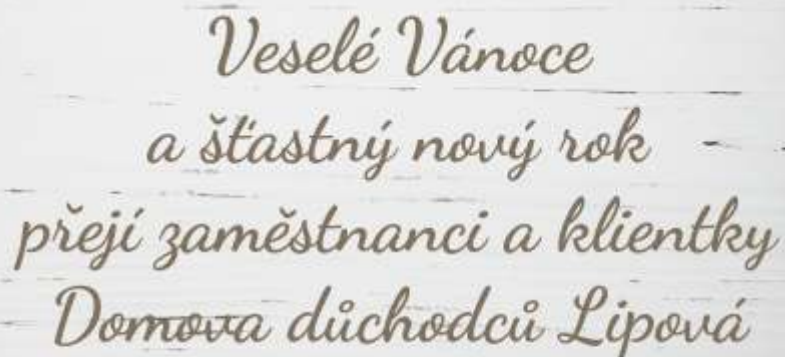 Veselé Vánoce
a šťastný nový rok
přejí zaměstnanci a klientky
Domova důchodců Lipová